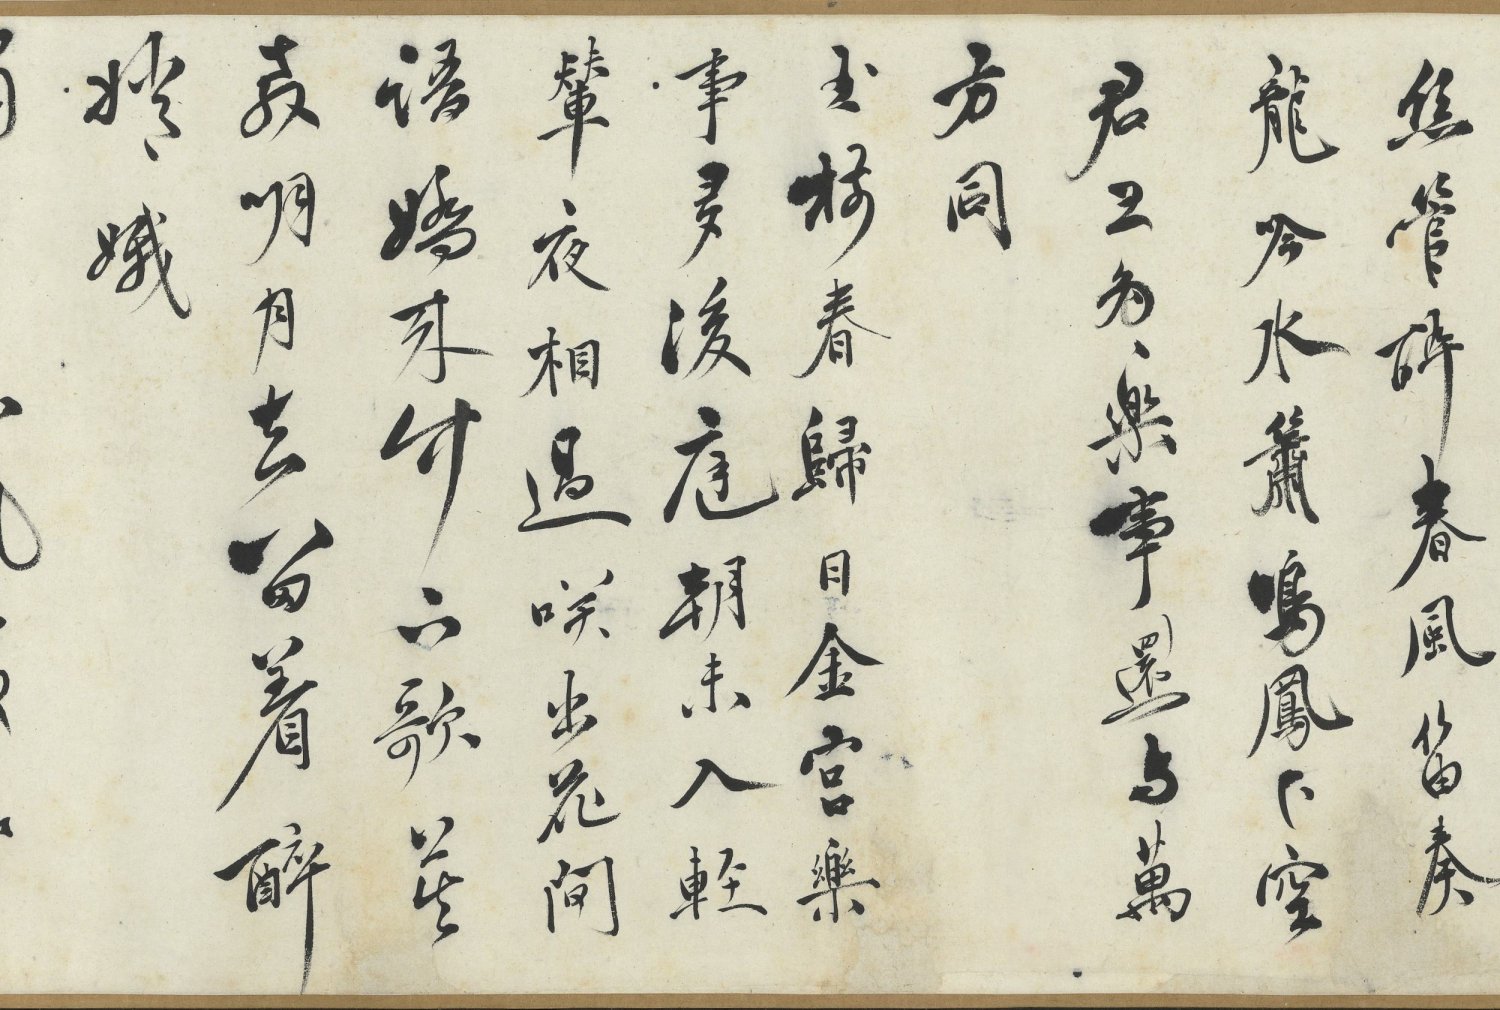 絲管醉春風笛奏
龍吟水簫鳴鳳下空
君王多樂事還与萬
方同
玉樹春歸日金宮樂
事多後庭朝未入輕
輦夜相過咲出花間
語嬌來竹下歌莫
教明月去留着醉
嫦娥